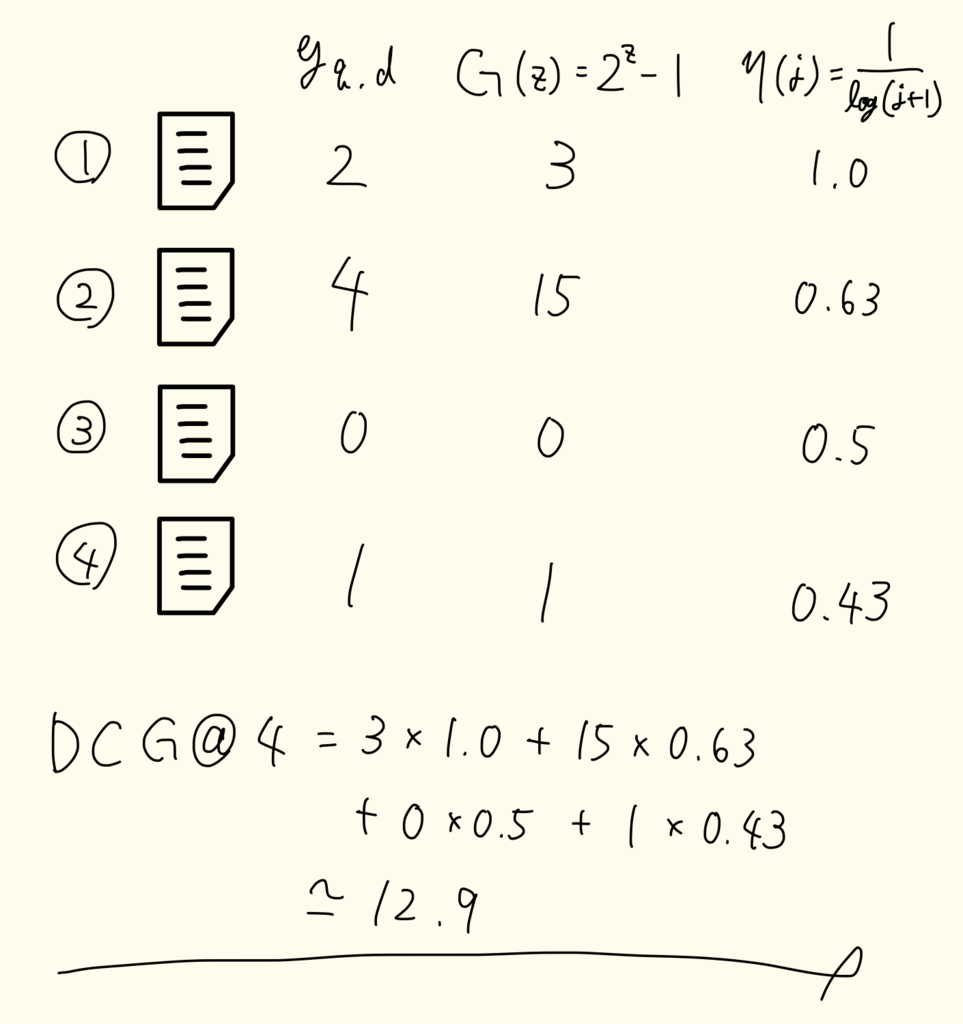 y q.d G(z)=2^z-1 η(j)=1/log(j+1)
① 2 3 1.0
② 4 15 0.63
③ 0 0 0.5
④ 1 1 0.43
DCG@4 = 3 × 1.0 + 15 × 0.63
+ 0 × 0.5 + 1 × 0.43
≃ 12.9